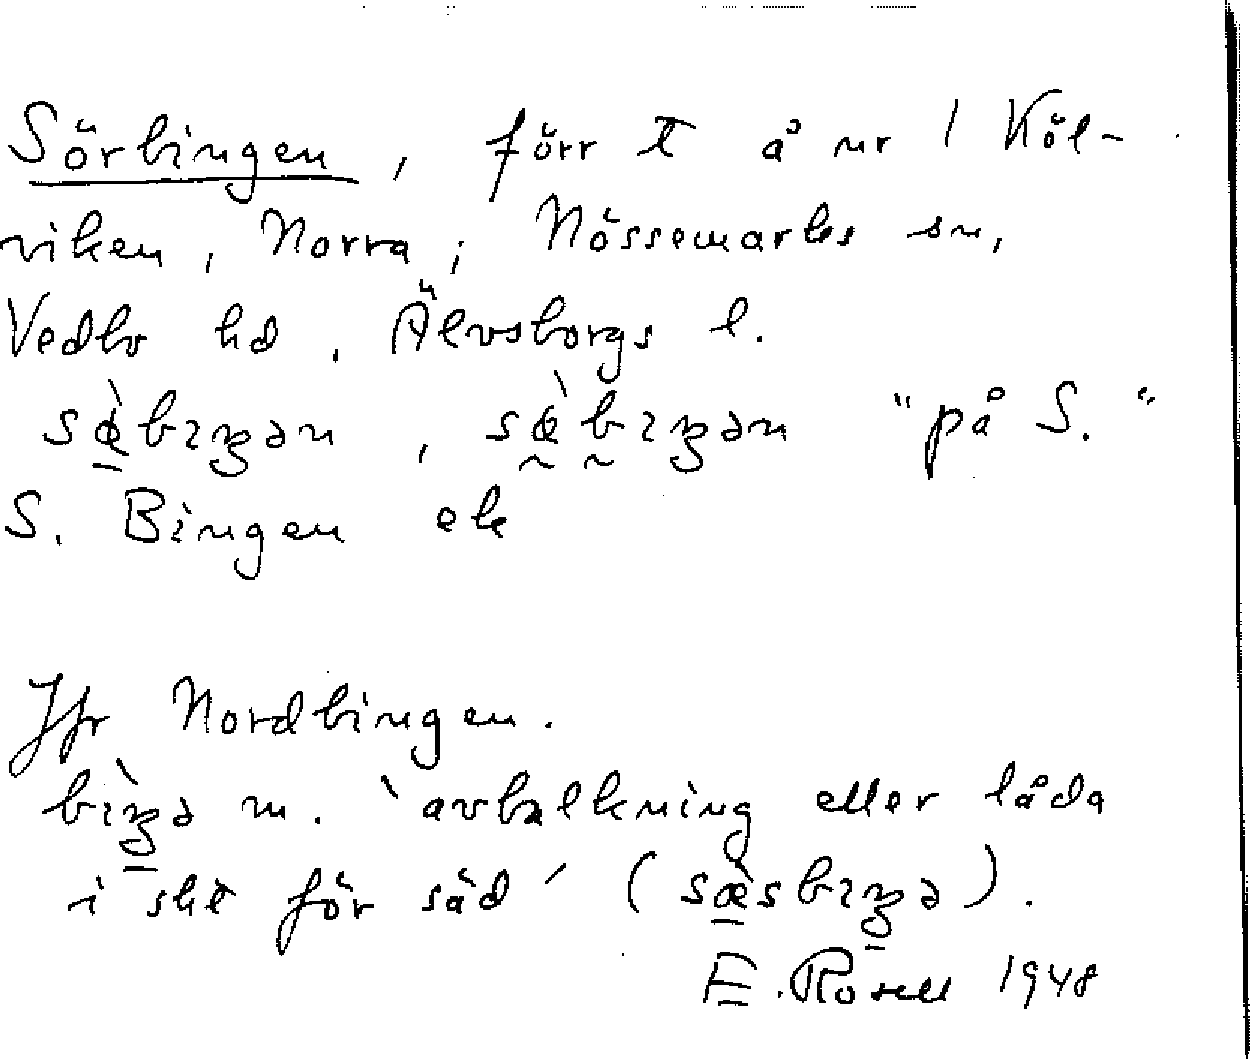 Sörbingen, förr t å nr 1 Köl-
viken, Norra; Nössemarks sn,
Vedbo hd, Älvsborgs l.
sæ̀bɪŋən, sæ̀bɪŋən "på S."
S. Bingen ek
Jfr Nordbingen.
bɪ̀ŋə m. 'avbalkning eller låda
i för säd' (sæ̀sbɪŋə).
E. Rosell 1948